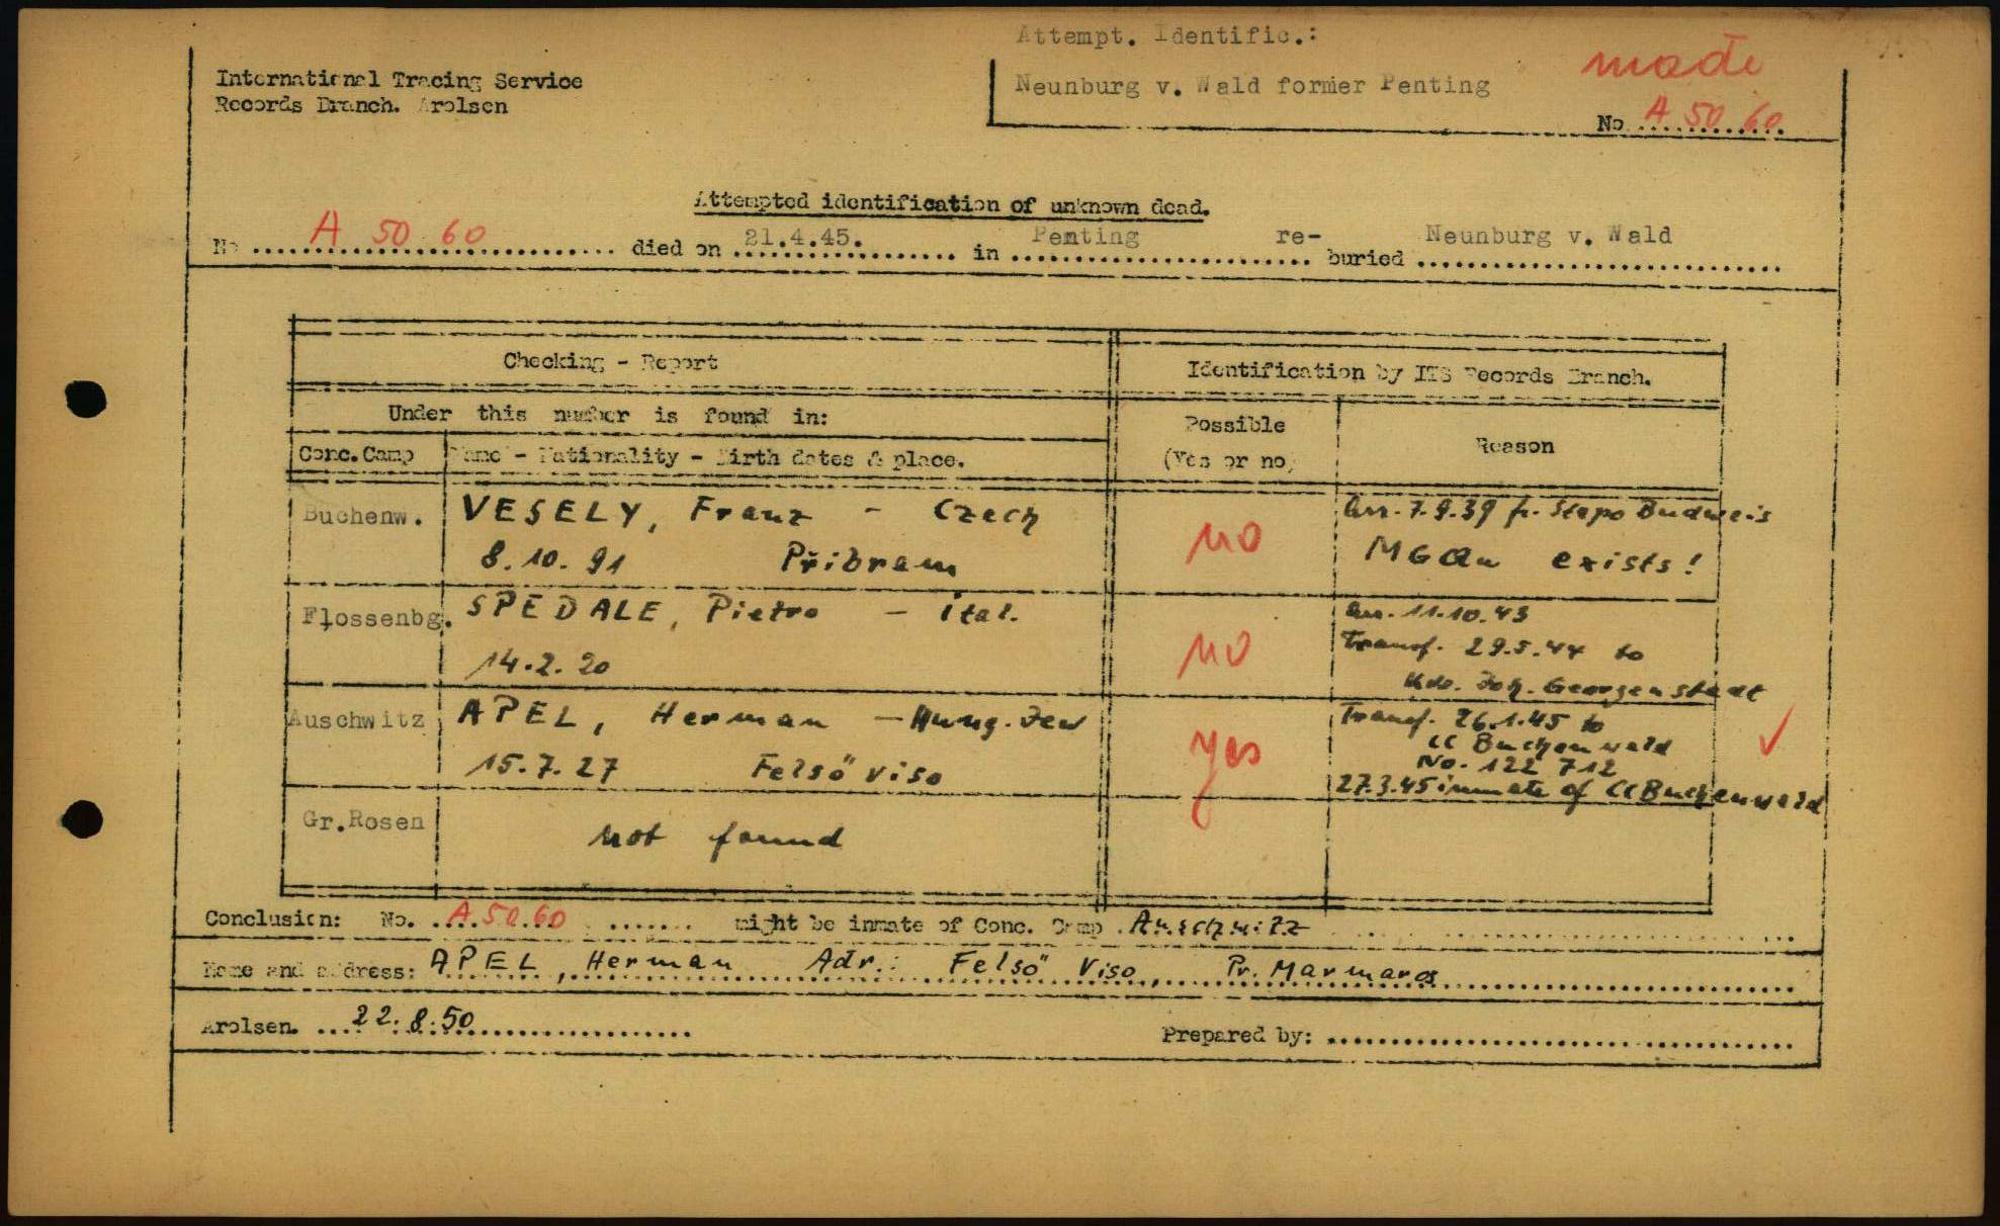 Attempt. Identific.:
International Tracing Service
Records Branch. Arolsen
Neunburg v. Wald former Penting
made
No A 50 60
Attempted identification of unknown dead.
No A 50 60 died on 21.4.45. in Penting re-buried Neunburg v. Wald
Checking - Report
Identification by ITS Records Branch.
Under this number is found in:
Possible
(Yes or no)
Reason
Conc.Camp
Name - Nationality - Birth dates & place.
Buchenw.
VESELY, Franz - Czech
8.10.91 Přibram
no
Arr. 7.9.39 fr. Stapo Budweis
exists!
Flossenbg.
SPEDALE, Pietro - ital.
14.2.20
no
Arr. 11.10.43
Transf. 29.5.44 to
Kdo. Joh. Georgenstadt
Auschwitz
APEL, Herman - Hung. Jew
15.7.27 Felsö viso
yes
Transf. 26.1.45 to
CC Buchenwald
No. 122 712
27.3.45 inmate of CC Buchenwald
Gr.Rosen
not found
Conclusion: No. A 50 60 might be inmate of Conc. Camp Auschwitz
Name and address: APEL, Herman Adr.: Felsö Viso, Pr. Marmaros
Arolsen. 22.8.50
Prepared by: